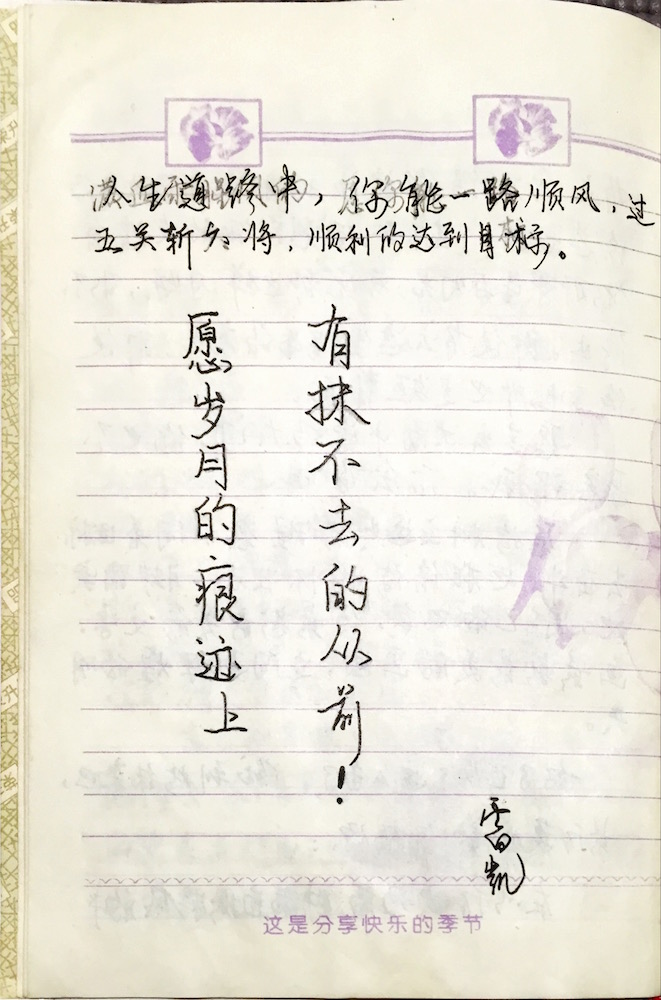 人生道路中，你能一路顺风，过
五关斩六将，顺利的达到目标。
愿岁月的痕迹上
有抹不去的从前！
雷凯
这是分享快乐的季节